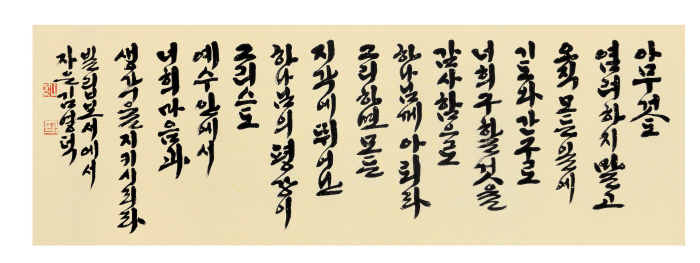 아무것도
염려하지 말고
오직 모든 일에
기도와 간구로
너희 구할 것을
감사함으로
하나님께 아뢰라
그리하면 모든
지각에 뛰어난
하나님의 평강이
그리스도
예수 안에서
너희 마음과
생각을 지키시리라
빌립보서에서
자은 김영덕